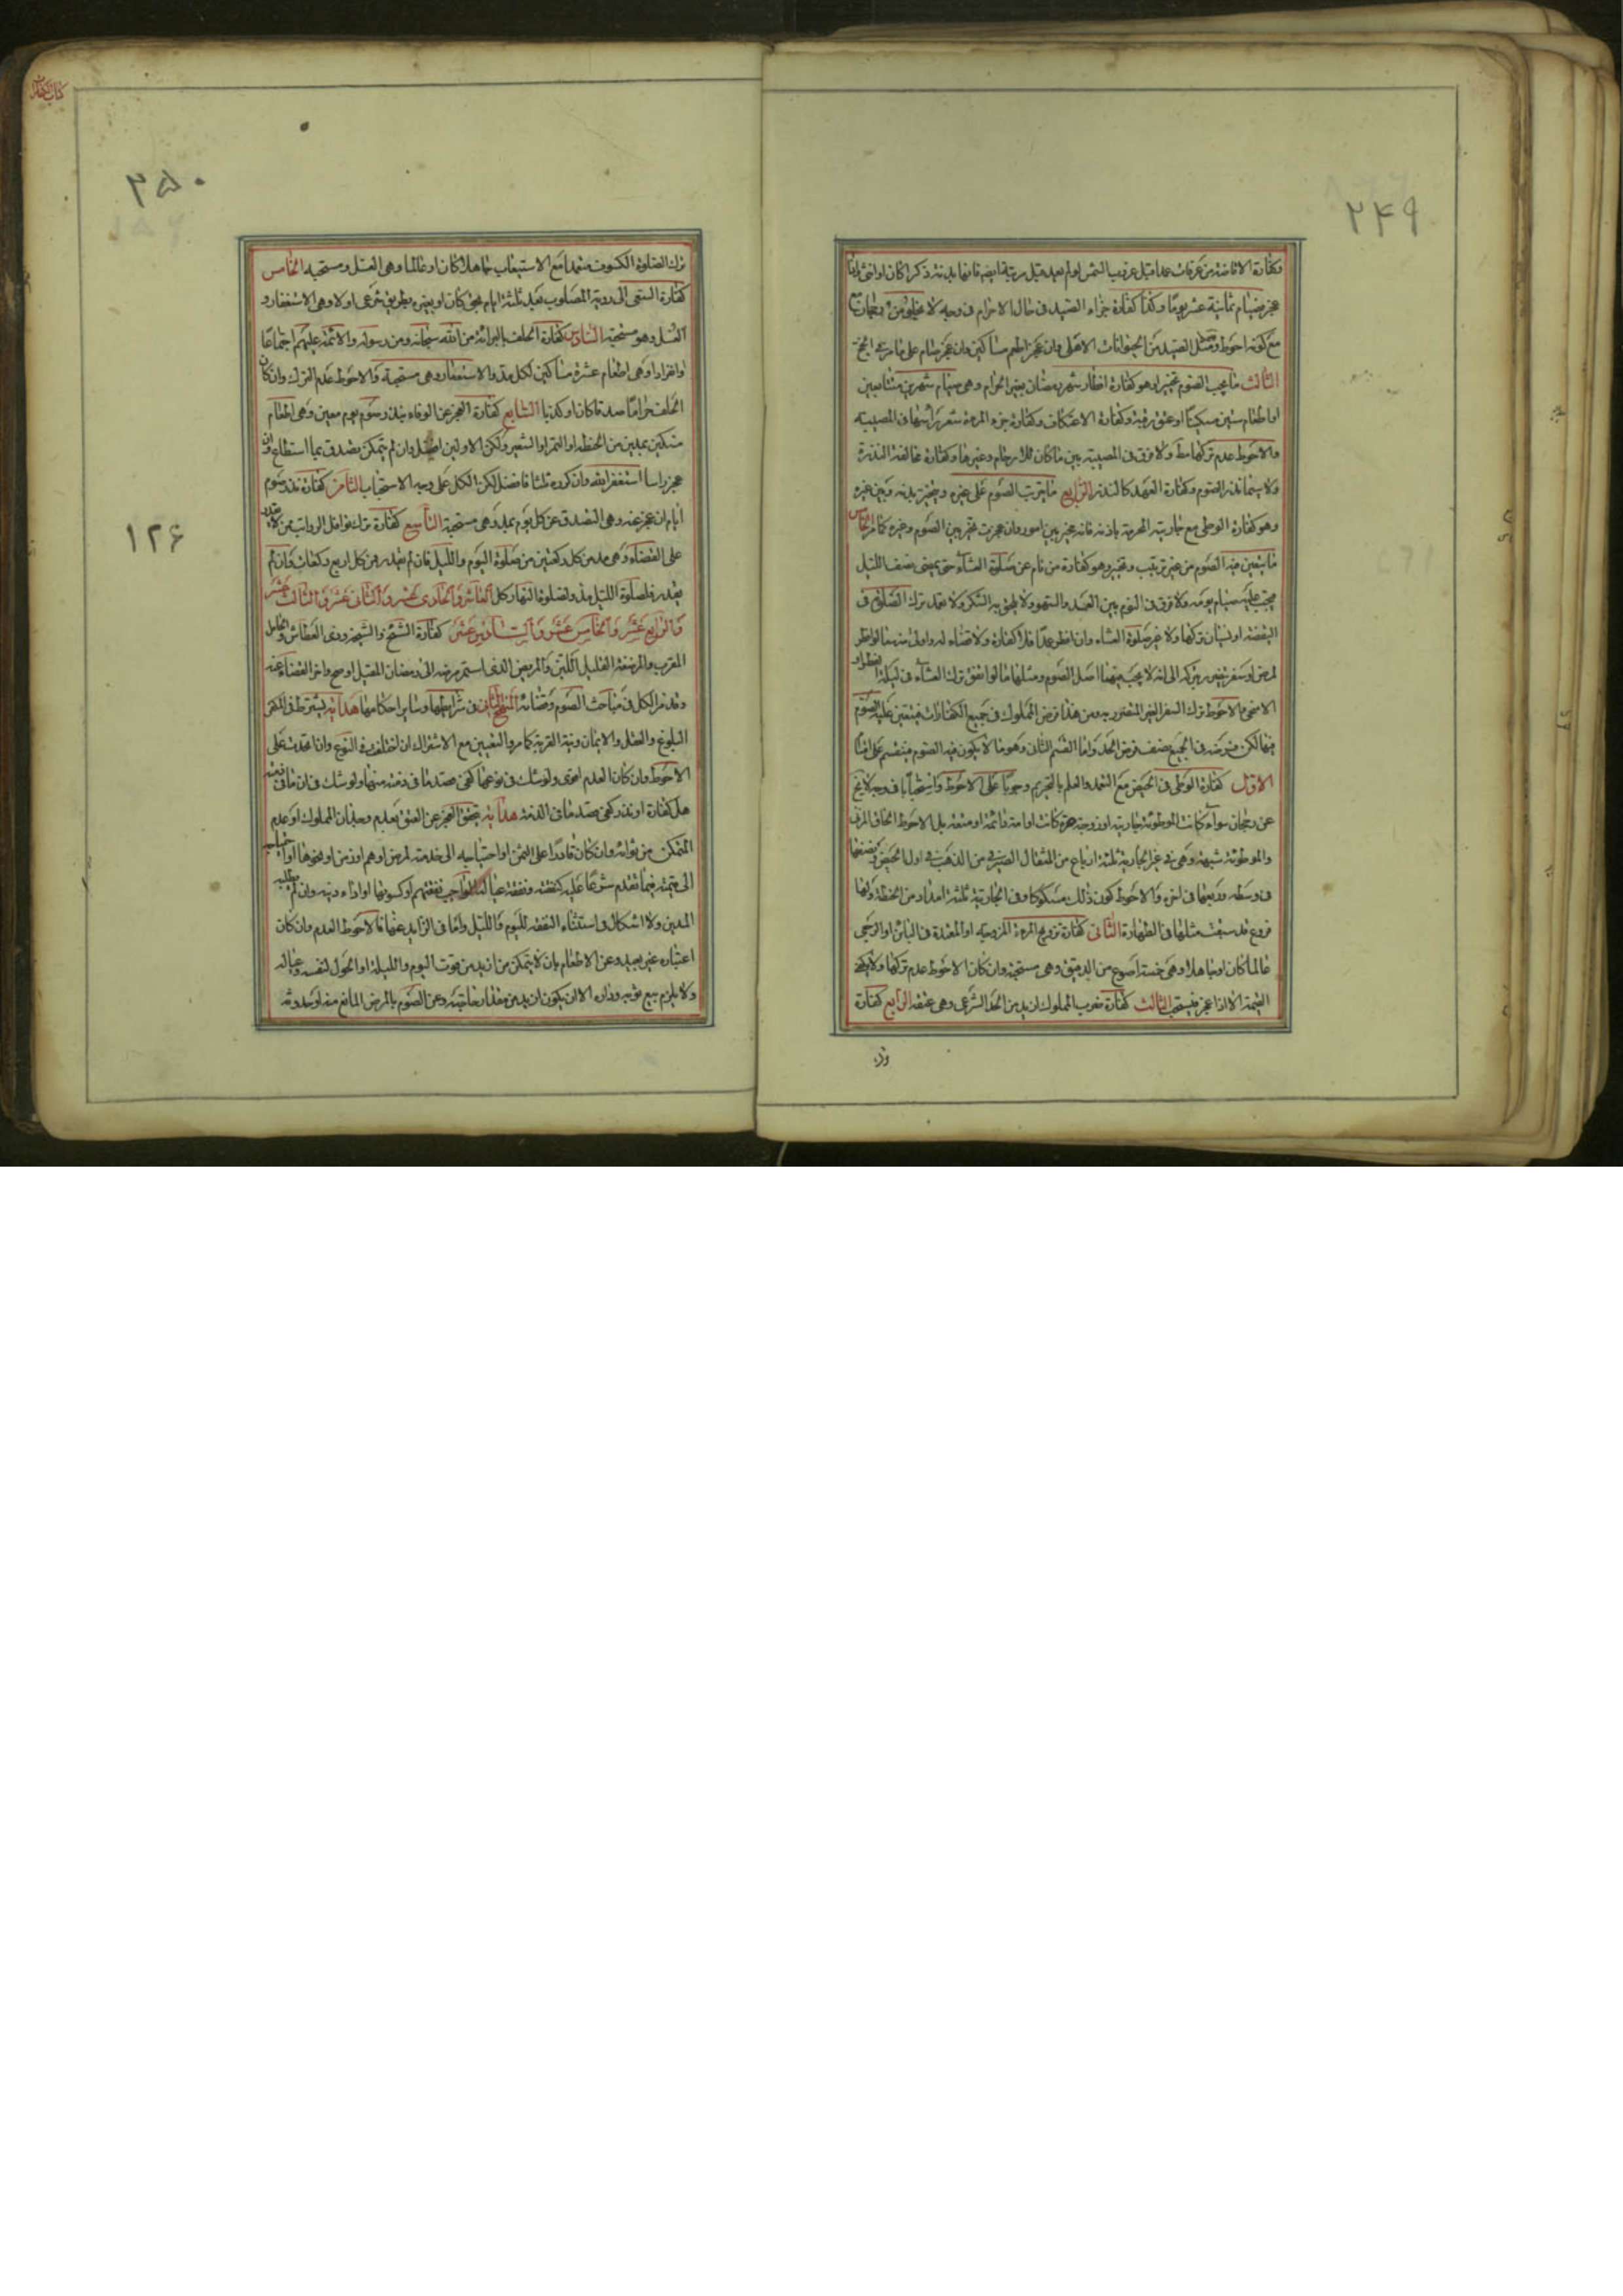 ۲۴۹
وكفارة الافاضة من عرفات عمدا قبل غروب الشمس اولم يعد قبل فانها بدنة ذكرا كان او انثى
عجز صيام ثمانية عشر يوما وكذا كفارة جزاء الصيد فى حال الاحرام فى وجه لا يخلو من رجحان
مع كونه احوط ومثل الصيد من الحيوانات الاهلى وان عجز اطعم مساكين وان عجز صام على ما مر فى الحج
الثالث ما يجب الصوم مخيرا وهو كفارة افطار شهر رمضان بغير الحرام وهى صيام شهرين متتابعين
او اطعام ستين مسكينا او عتق رقبة وكفارة الاعتكاف وكفارة جز المرءة شعر رأسها فى المصيبة
والاحوط عدم تركها مط ولا فرق فى المصيبة بين ما كان للارحام وغيرها وكفارة مخالفة النذر
ولا سيما نذر الصوم وكفارة العهد كالنذر الرابع ما يترتب الصوم على غيره ويتخير بينه وبين غيره
وهو كفارة الوطى مع جاريته المحرمة باذنه فانه مخير بين امور وان عجز تخير بين الصوم وغيره كما مر الخامس
ما يتعين فيه الصوم من غير ترتيب وتخيير وهو كفارة من نام عن صلوة العشاء حتى يمضى نصف الليل
فيجب عليه صيام يومه ولا فرق فى النوم بين العمد والسهو ولا يلحق به السكر ولا تعمد ترك الصلوة فى
اليقظة او نسيان تركها ولا غير صلوة العشاء وان افطر عمدا فلا كفارة ولا قضاء له
لمرض او سفر الى انه لا يجب فيهما اصل الصوم ومثلها ما لو اتفق ترك العشاء فى ليلة
الاضحى والاحوط ترك السفر الغير الضرورى ومن هذا فرض المملوك فى جميع الكفارات فيتعين عليه الصوم
فيها لكن فى الجميع نصف فرض الحد واما القسم الثانى وهو ما لا يكون فيه الصوم فينقسم على اقسام
الاول كفارة الوطى فى الحيض مع التعمد والعلم بالتحريم وجوبا على الاحوط واستحبابا فى وجه لا يخ
عن رجحان سواء كانت الموطوئة جاريته او زوجة حرة كانت او امة دائمة او متعة بل الاحوط الحاق المزنى
والموطوئة شبهة وهى فى غير الجارية ثلثة ارباع من المثقال الصيرفى من الذهب فى اول الحيض ونصفها
فى وسطه وربعها فى اخره والاحوط كون ذلك مسكوكا وفى الجارية ثلثة امداد من الحنطة ولها
فروع قد سبقت مثلها فى الطهارة الثانى كفارة تزويج المرءة المزوجة او المعتدة فى البائن او الرجعى
عالما كان او جاهلا وهى خمسة اصوع من الدقيق وهى مستحبة وان كان الاحوط عدم تركها ولا يكفى
القيمة الا اذا عجز فيستحب الثالث كفارة ضرب المملوك ازيد من الحد الشرعى وهى عتقه الرابع كفارة
كتاب الكفارات
۲۵۰
ترك الصلوة الكسوف متعمدا مع الاستيعاب جاهلا كان او عالما وهى الغسل ومستحبة الخامس
كفارة السعى الى رؤية المصلوب بعد ثلثة ايام بحق كان او بغيره بطريق شرعى او لا وهى الاستغفار و
الغسل وهو مستحبة السادس كفارة الحلف بالبرائة من الله سبحانه ومن رسوله والائمة عليهم اجتماعا
وانفرادا وهى اطعام عشرة مساكين لكل مد والاستغفار وهى مستحبة والاحوط عدم الترك وان كان
الحلف حراما صدقا كان او كذبا السابع كفارة العجز عن الوفاء بنذر صوم يوم معين وهى اطعام
مسكين بمدين من الحنطة او التمر او الشعير ولكن الاولين افضل وان لم يتمكن تصدق بما استطاع وان
عجز راسا استغفر الله وان كرره ثلثا فافضل لكن الكل على وجه الاستحباب الثامن كفارة نذر صوم
ايام ان عجز عنه وهى التصدق عن كل يوم بمد وهى مستحبة التاسع كفارة ترك نوافل الرواتب من لا يقدر
على القضاء وهى مد من كل ركعتين من صلوة اليوم والليل فان لم يقدر من كل اربع ركعات وان لم
يقدر فلصلوة الليل مد ولصلوة النهار كل العاشر والحادى عشر والثانى عشر والثالث عشر
والرابع عشر والخامس عشر والسادس عشر كفارة الشيخ والشيخة وذى العطاش والحامل
المقرب والمرضعة القليل اللبن والمريض الذى استمر مرضه الى رمضان المقبل او صح واخر القضاء عنه
وقد مر الكل فى مباحث الصوم وقضائه المنهج الثانى فى شرائطها وسائر احكامها هداية يشترط فى المكفر
البلوغ والعقل والايمان ونية القربة كما مر والتعيين مع الاشتراك ان اختلف فى النوع واتحدت على
الاحوط وان كان العدم اقوى ولو شك فى نوعها كفى قصد ما فى ذمته منهما ولو شك فى ان ما فى ذمته
هل كفارة او نذر كفى قصد ما فى الذمة هداية يتحقق العجز عن العتق بعدم وجدان المملوك او عدم
التمكن من شرائه وان كان قادرا على الثمن او احتياجه الى خدمته لمرض او هرم او زمن او نحوها او احتياجه
الى قيمته فيما تقدم شرعا عليه كنفقته ونفقة عياله الواجب نفقتهم او كسوتهم او اداء دينه وان لم يطلبه
المدين ولا اشكال فى استثناء النفقة لليوم والليل واما فى الزايد عنها فالاحوط العدم وان كان
اعتباره غير بعيد وعن الاطعام بان لا يتمكن من ازيد من قوت اليوم والليلة او الحول لنفسه وعياله
ولا يلزم بيع ثوبه وداره الا ان يكون ازيد من مقدار حاجته وعن الصوم بالمرض المانع منه او حدوثه
۱۲۶